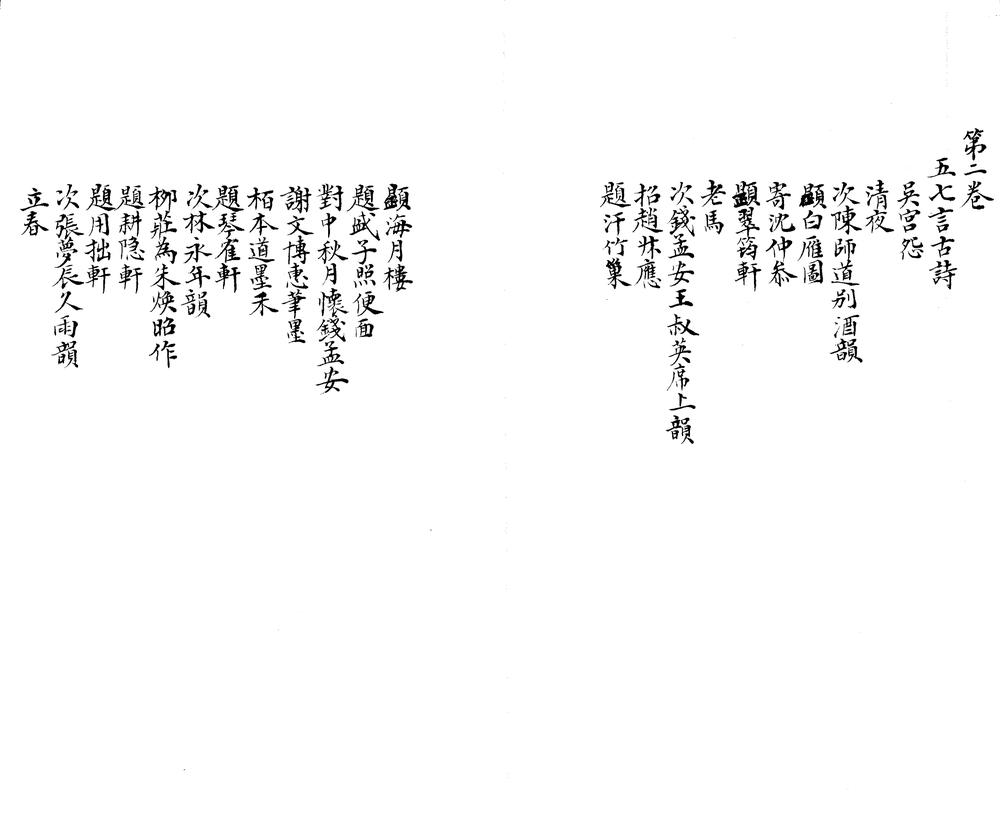 第二卷
五七言古詩
吳宮怨
清夜
次陳師道别酒韻
題白雁圖
寄沈仲叅
題翠筠軒
老馬
次錢孟安王叔英席上韻
招趙㭍應
題汗竹巢
題海月樓
題戚子照便面
對中秋月懷錢孟安
謝文博惠筆墨
栢本道墨禾
題琴隺軒
次林永年韻
栁莊為朱煥昭作
題耕隐軒
題用拙軒
次張夢辰久雨韻
立春